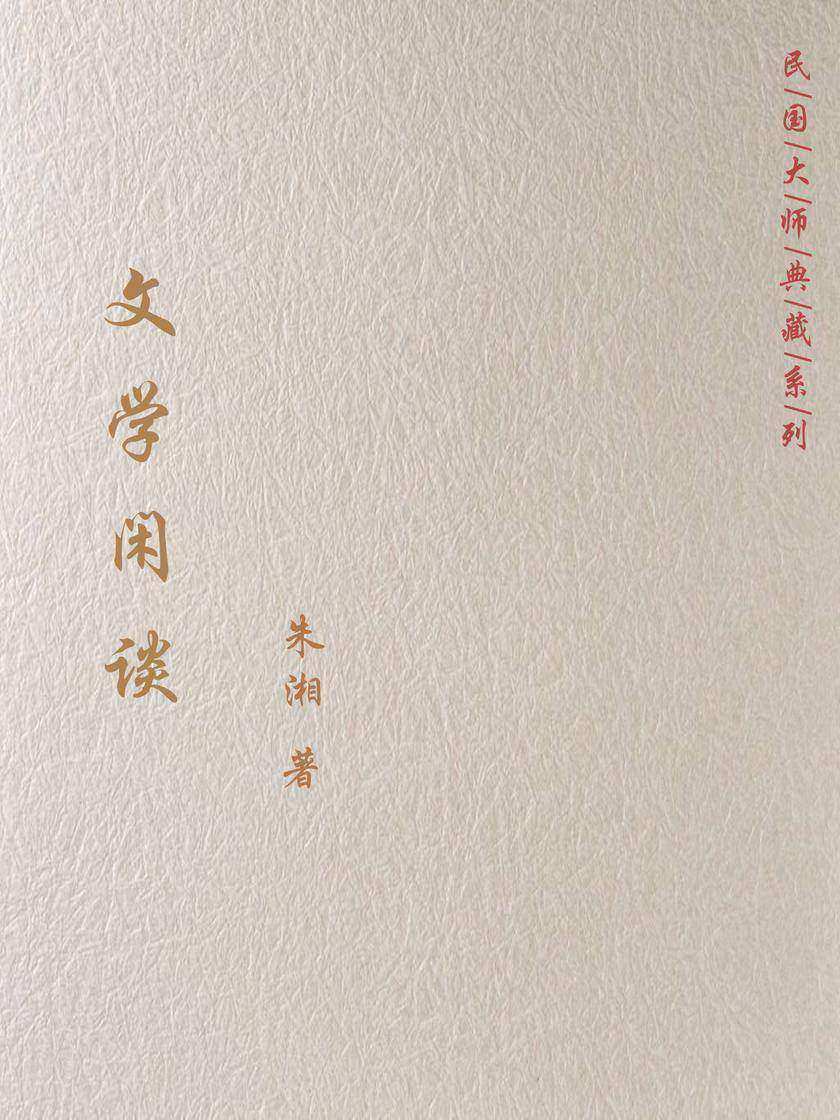 民|国|大|师|典|藏|系|列
文学闲谈
朱湘 著